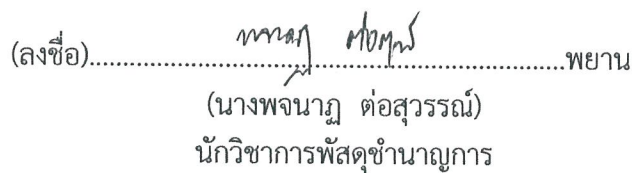 (ลงชื่อ)..........................................................พยาน
(นางพจนาฏ ต่อสุวรรณ์)
นักวิชาการพัสดุชำนาญการ